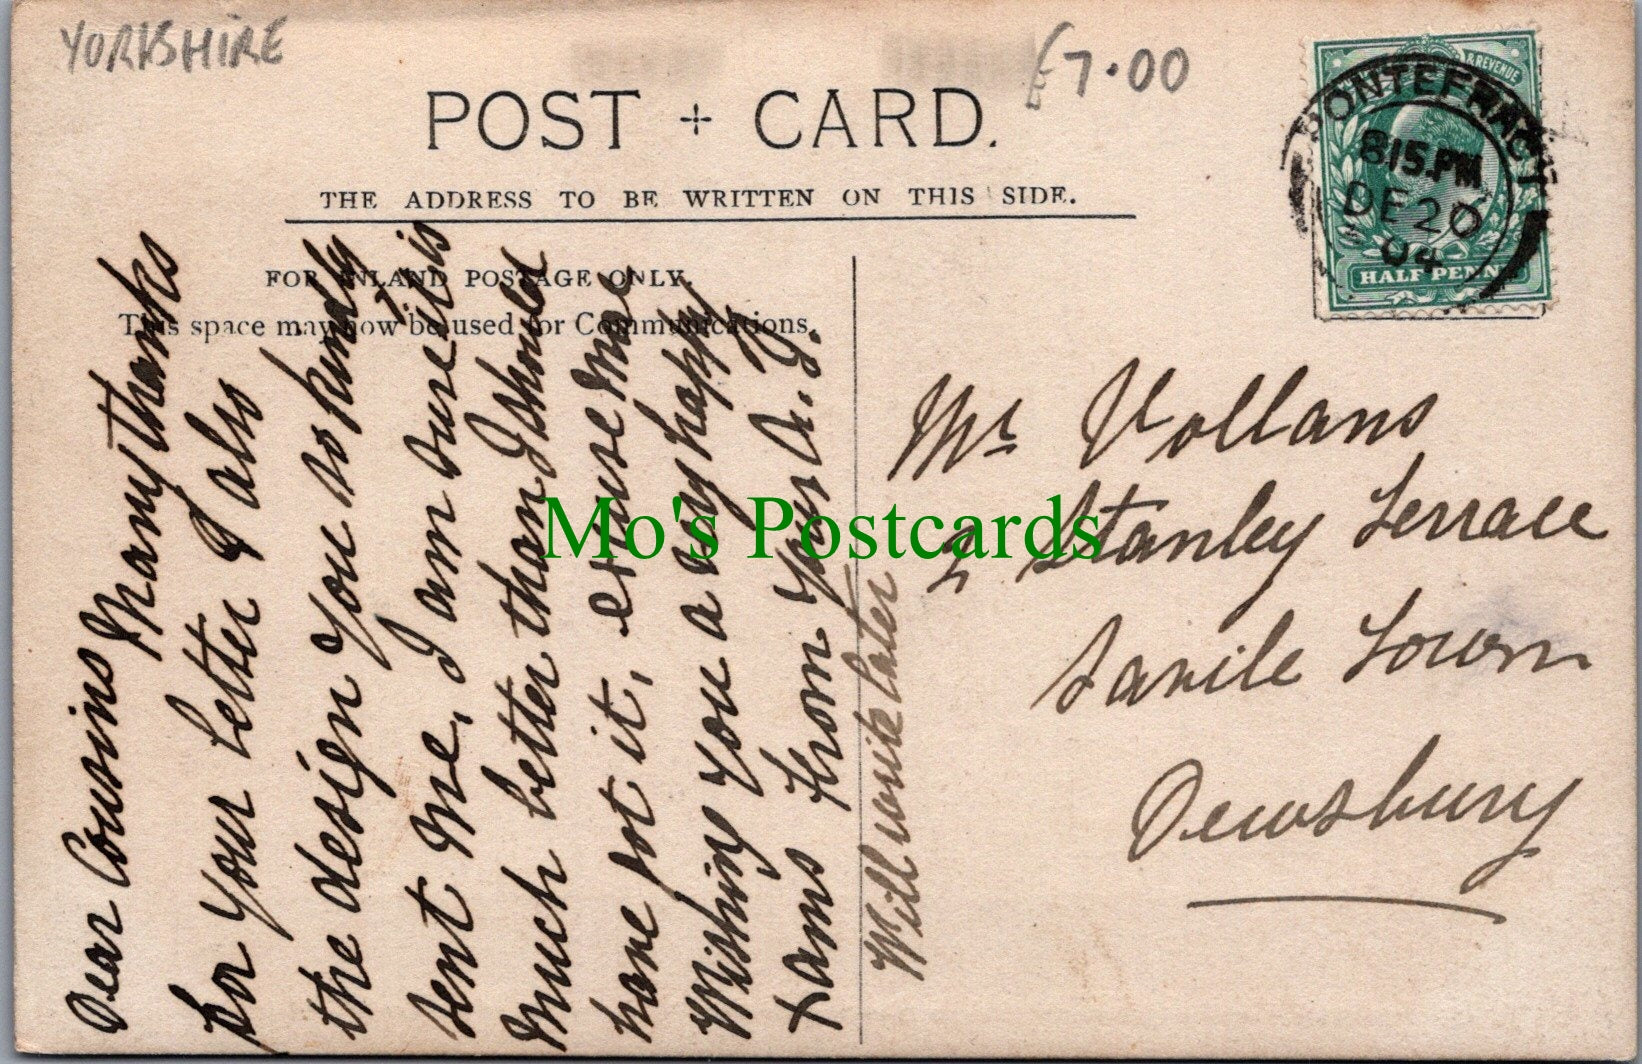 YORKSHIRE
£7.00
POST + CARD.
THE ADDRESS TO BE WRITTEN ON THIS SIDE.
FOR INLAND POSTAGE ONLY.
This space may now be used for Communications.
& REVENUE
HALF PENNY
PONTEFRACT
8.15.PM
DE 20
04
Dear Cousins Many thanks
for your letter & also
the design you so kindly
sent me, I am sure it is
much better than I should
have got it, excuse me
Wishing you a very happy
Xams from your A. J.
Will write later
Mr Vollans
2 Stanley Terrace
Savile Town
Dewsbury
Mo's Postcards